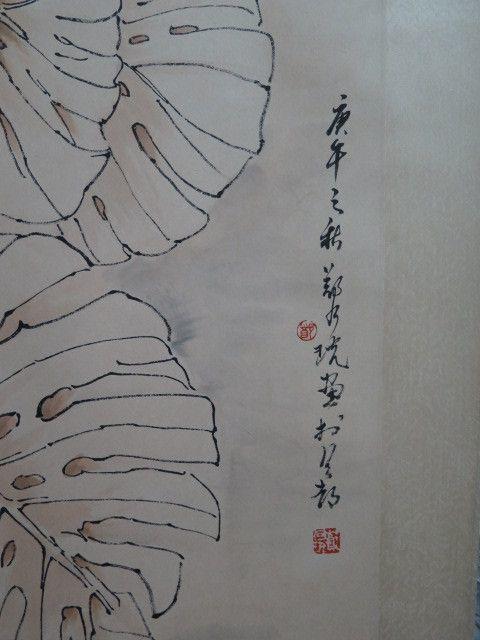 庚午之秋鄭乃珖畫於都